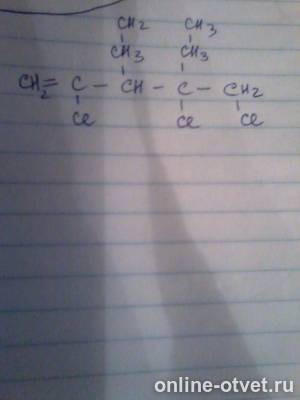 CH2 CH3
CH3 CH3
CH2= C - CH - C - CH2
Cl Cl Cl
online-otvet.ru